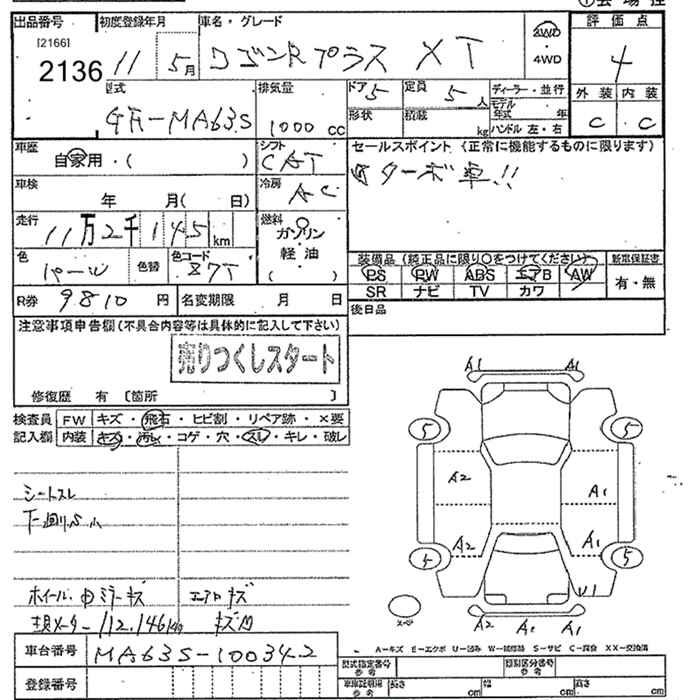 ①会場控
出品番号 初度登録年月 車名・グレード 評価点
[2166] 2136 11 5月 ワゴンRプラス XT 2WD・4WD 4
型式 排気量 ドア 5 定員 5人 ディーラー・並行 外装 内装
GF-MA63S 1000cc 形状 積載 kg モデル年式 年 ハンドル 左・右 C C
車歴 自家用・( ) シフト CAT セールスポイント (正常に機能するものに限ります)
車検 年 月( 日) 冷房 AC ターボ車!!
走行 11万2千145km 燃料 ガソリン・軽油( )
色 パール 色替 色コード Z7T 装備品 (純正品に限り○をつけてください) 新車保証書
PS PW ABS エアB AW 有・無
SR ナビ TV カワ
R券 9810円 名変期限 月 日 後日品
注意事項申告欄(不具合内容等は具体的に記入して下さい)
売りつくしスタート
修復歴 有 〔箇所 〕
検査員 FW キズ・飛石・ヒビ割・リペア跡・×要
記入欄 内装 キズ・汚れ・コゲ・穴・スレ・キレ・破レ
A1 A1
5 5
A2 A1
A2 A1
5 5
U1
A2 A1 A1
スペア
シートスレ
下廻りS小
ホイール・ミラーキズ エアロキズ
現メーター 112,146km
A-キズ E-エクボ U-凹み W-補修跡 S-サビ C-腐食 XX-交換済
車台番号 MA63S-100342 型式指定番号 参考 類別区分番号 参考
登録番号 車庫証明用 参考 長さ cm 幅 cm 高さ cm